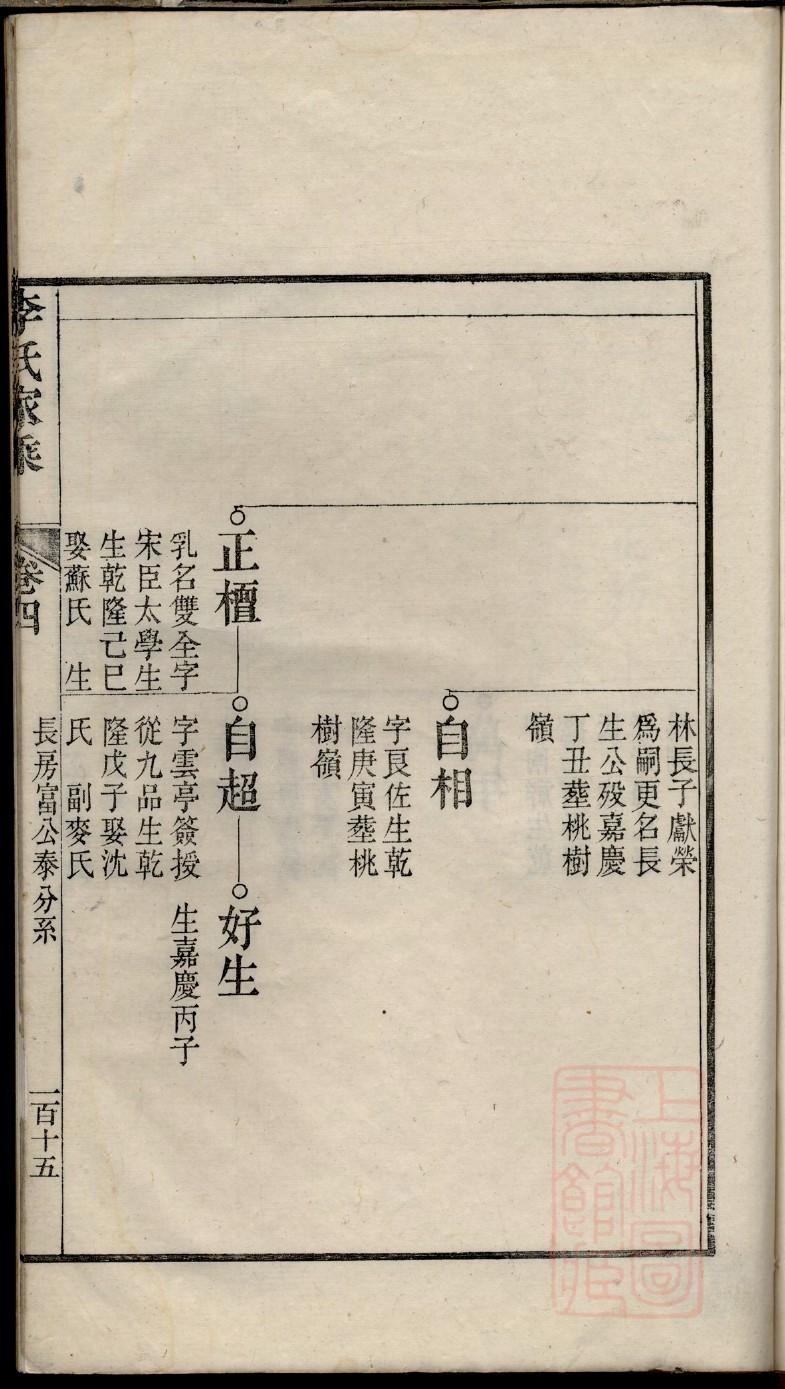 林長子獻榮
為嗣更名長
生公殁嘉慶
丁丑塟桃樹
嶺
自相
字良佐生乾
隆庚寅塟桃
樹嶺
正檀
乳名雙全字
宋臣太學生
生乾隆己巳
娶蘇氏　生
自超
字雲亭簽授
從九品生乾
隆戊子娶沈
氏　副麥氏
好生
生嘉慶丙子
李氏家乘
卷四
長房富公泰分系
一百十五
上海圖
書館藏